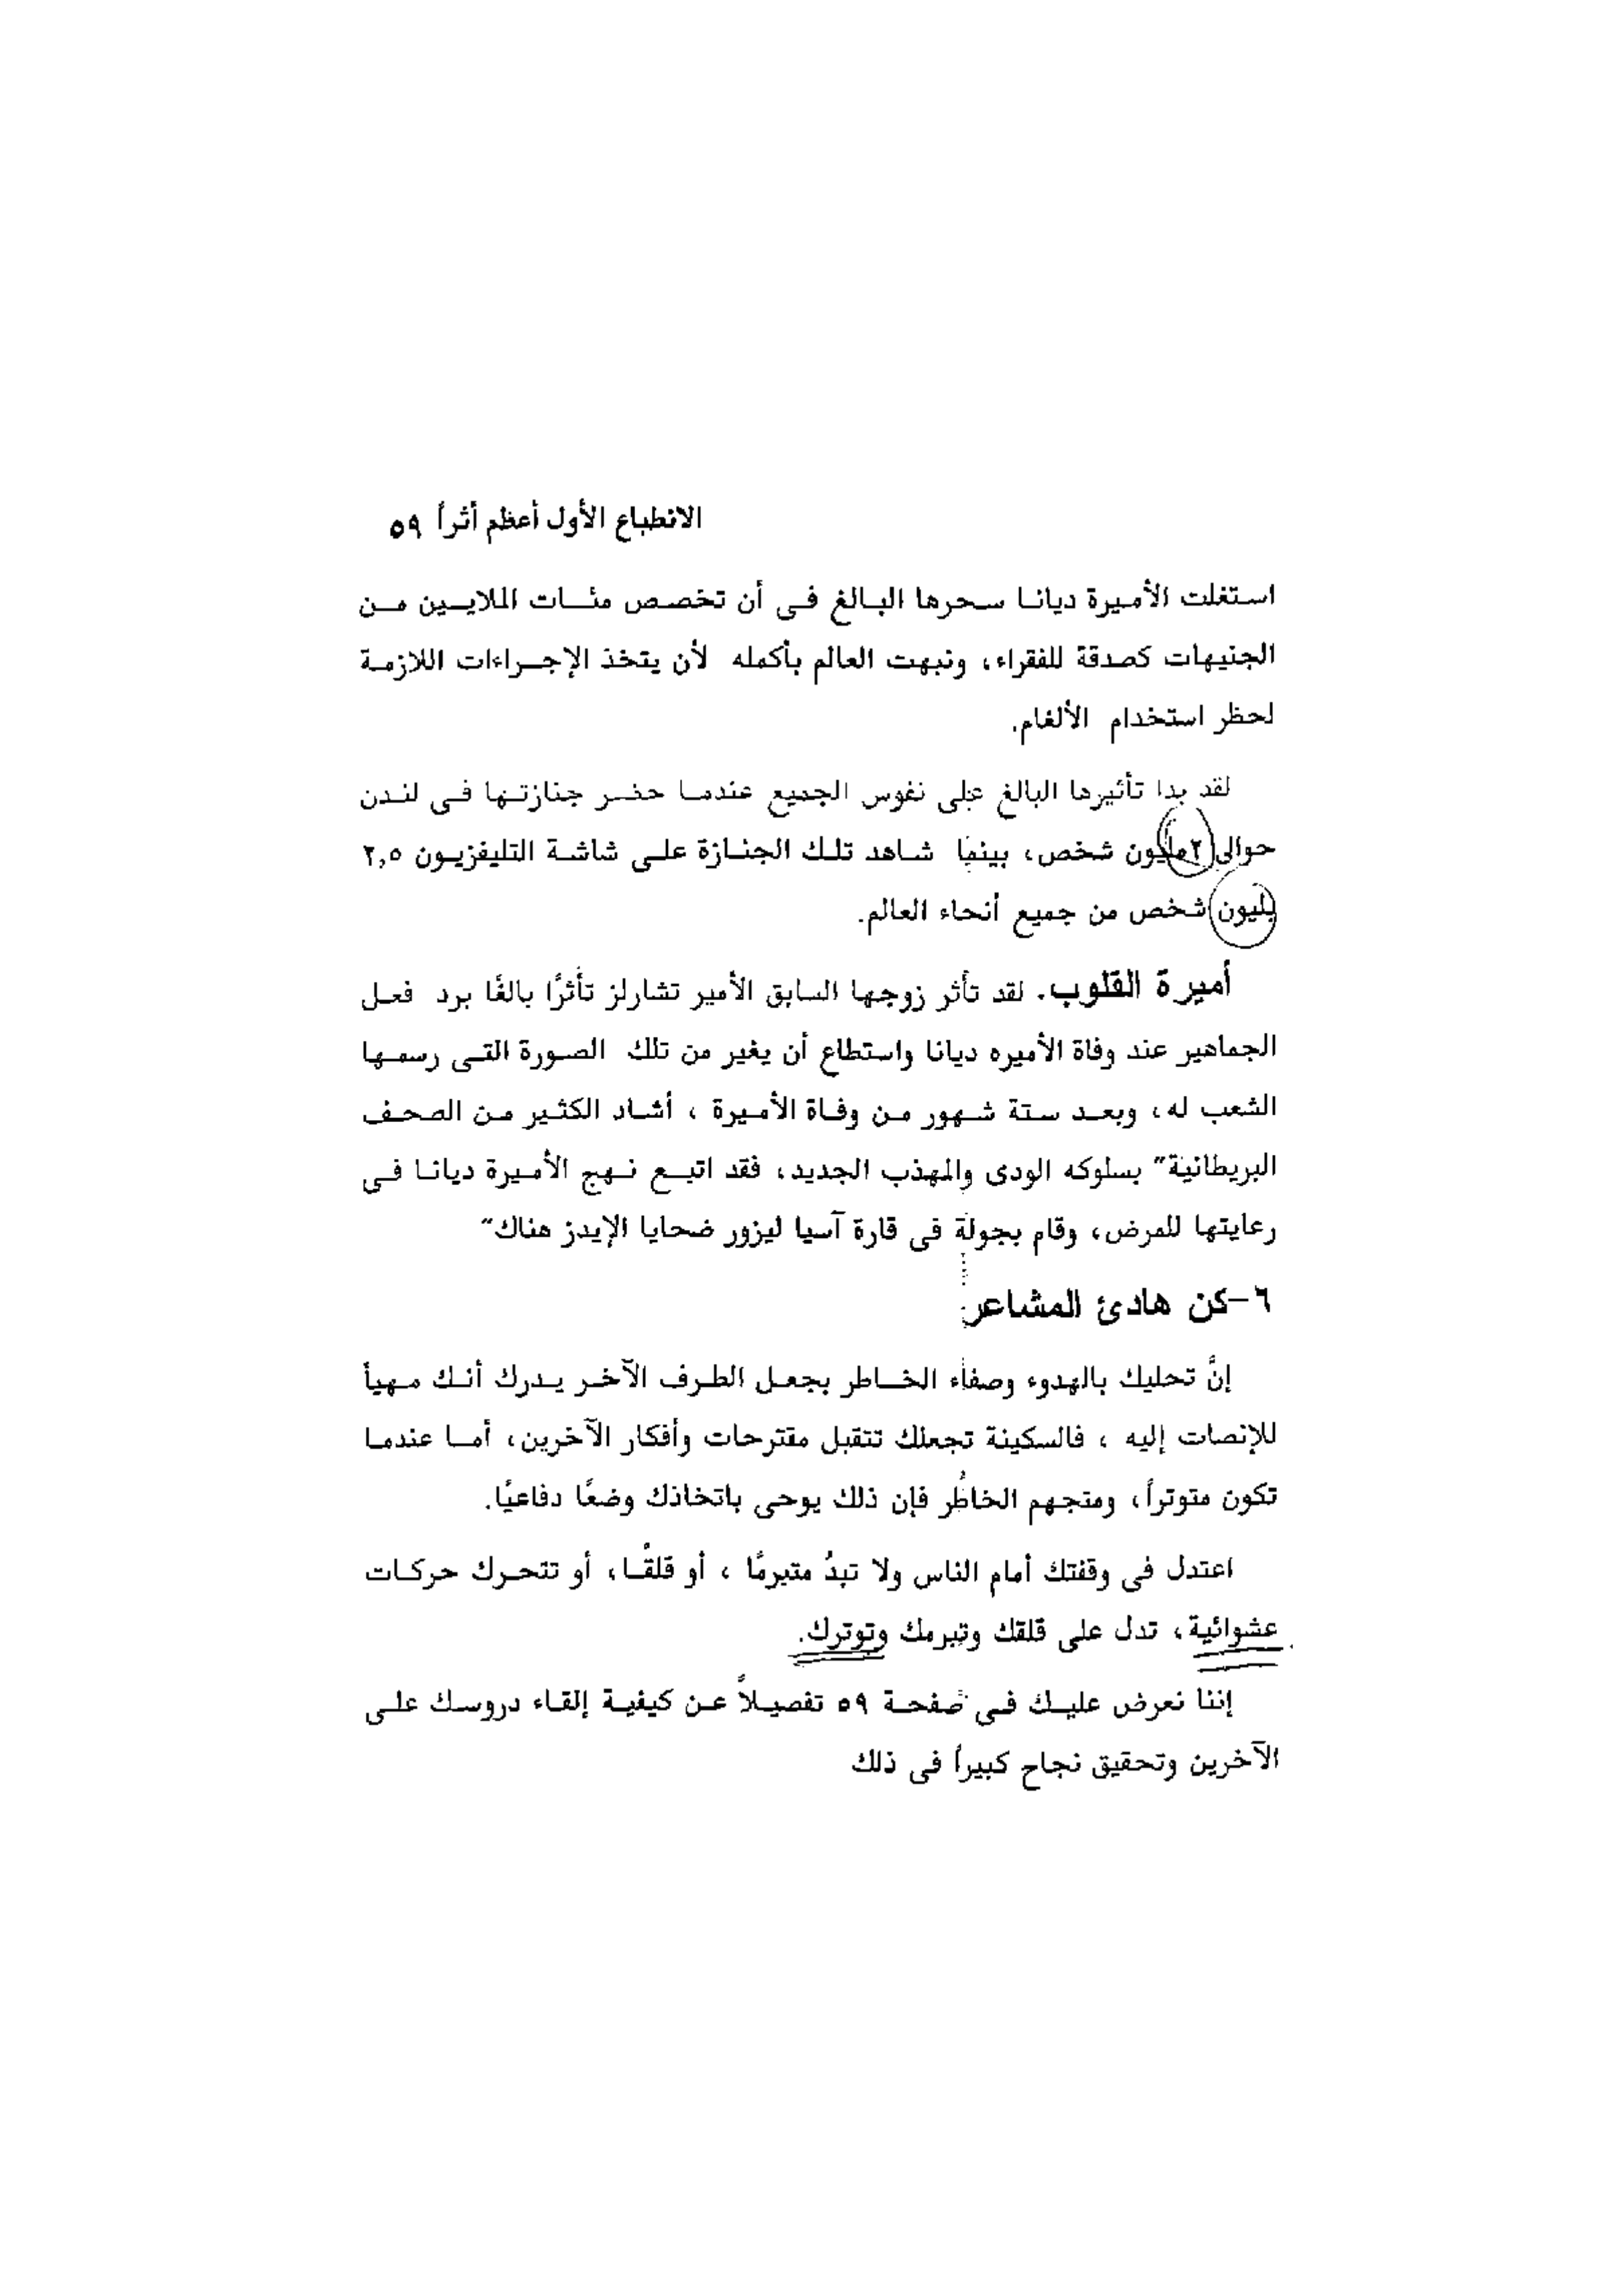 الانطباع الأول أعظم أثراً ٥٩
استغلت الأميرة ديانا سحرها البالغ فى أن تخصص مئات الملايين من
الجنيهات كصدقة للفقراء، ونبهت العالم بأكمله لأن يتخذ الإجراءات اللازمة
لحظر استخدام الألغام.
لقد بدا تأثيرها البالغ على نفوس الجميع عندما حضر جنازتها فى لندن
حوالى ٢مليون شخص، بينما شاهد تلك الجنازة على شاشة التليفزيون ٢,٥
بليون شخص من جميع أنحاء العالم.
أميرة القلوب. لقد تأثر زوجها السابق الأمير تشارلز تأثرًا بالغًا برد فعل
الجماهير عند وفاة الأميره ديانا واستطاع أن يغير من تلك الصورة التى رسمها
الشعب له، وبعد ستة شهور من وفاة الأميرة ، أشاد الكثير من الصحف
البريطانية" بسلوكه الودى والمهذب الجديد، فقد اتبع نهج الأميرة ديانا فى
رعايتها للمرض، وقام بجولة فى قارة آسيا ليزور ضحايا الإيدز هناك"
٦-كن هادئ المشاعر
إنَّ تحليك بالهدوء وصفاء الخاطر بجعل الطرف الآخر يدرك أنك مهيأ
للإنصات إليه ، فالسكينة تجعلك تتقبل مقترحات وأفكار الآخرين، أما عندما
تكون متوتراً، ومتجهم الخاطر فإن ذلك يوحى باتخاذك وضعًا دفاعيًا.
اعتدل فى وقفتك أمام الناس ولا تبدُ متبرمًا ، أو قلقًا، أو تتحرك حركات
عشوائية، تدل على قلقك وتبرمك وتوترك.
إننا نعرض عليك فى صفحة ٥٩ تفصيلاً عن كيفية إلقاء دروسك على
الآخرين وتحقيق نجاح كبيراً فى ذلك